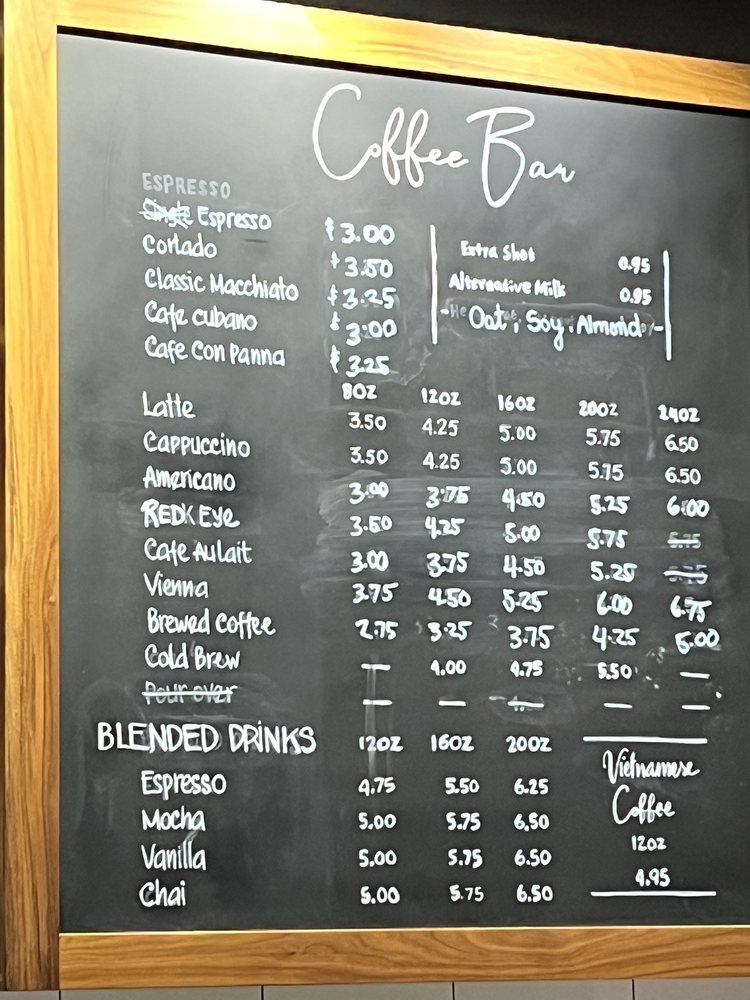 Coffee Bar
ESPRESSO
Single Espresso $3.00
Cortado $3.50
Classic Macchiato $3.25
Cafe cubano $3.00
Cafe Con Panna $3.25
Extra Shot 0.95
Alternative Milk 0.95
- Oat, Soy, Almond -
8oz 12oz 16oz 20oz 24oz
Latte 3.50 4.25 5.00 5.75 6.50
Cappuccino 3.50 4.25 5.00 5.75 6.50
Americano 3.00 3.75 4.50 5.25 6.00
REDX EYe 3.50 4.25 5.00 5.75 5.75
Cafe Au lait 3.00 3.75 4.50 5.25
Vienna 3.75 4.50 5.25 6.00 6.75
Brewed Coffee 2.75 3.25 3.75 4.25 5.00
Cold Brew — 4.00 4.75 5.50 —
Pour over — — — — —
BLENDED DRINKS 12oz 16oz 20oz
Espresso 4.75 5.50 6.25
Mocha 5.00 5.75 6.50
Vanilla 5.00 5.75 6.50
Chai 5.00 5.75 6.50
Vietnamese
Coffee
12oz
4.95